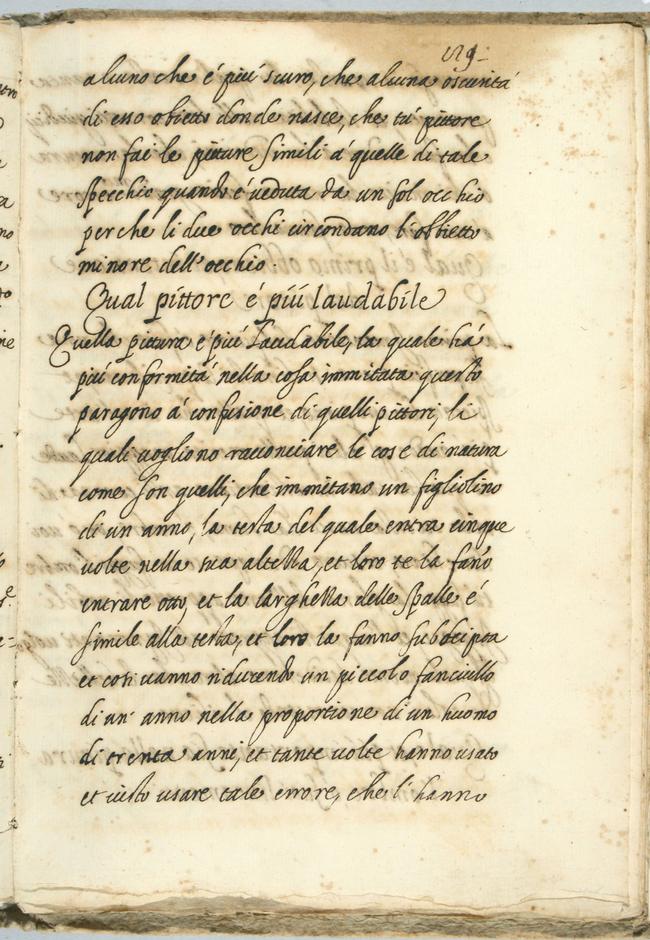 129.
alcuno che é piú scuro, che alcuna oscuritá
di esso obietto donde nasce, che tú pittore
non fai le pitture simili á quelle di tale
specchio quando é veduta da un sol occhio
perche li due occhi circondano l'obbietto
minore dell'occhio.
Qual pittore é piú laudabile
Quella pittura é piú laudabile, la quale há
piú conformitá nella cosa immitata questo
paragono á confusione di quelli pittori, li
quali vogliono racconciare le cose di natura
come son quelli, che immitano un figliolino
di un anno, la testa del quale entra cinque
volte nella sua altezza, et loro te la fano
entrare otto, et la larghezza delle spalle é
simile alla testa, et loro la fanno subdcipta
et cosi vanno riducendo un piccolo fanciullo
di un' anno nella proportione di un huomo
di trenta anni, et tante volte hanno usato
et visto usare tale errore, che l'hanno